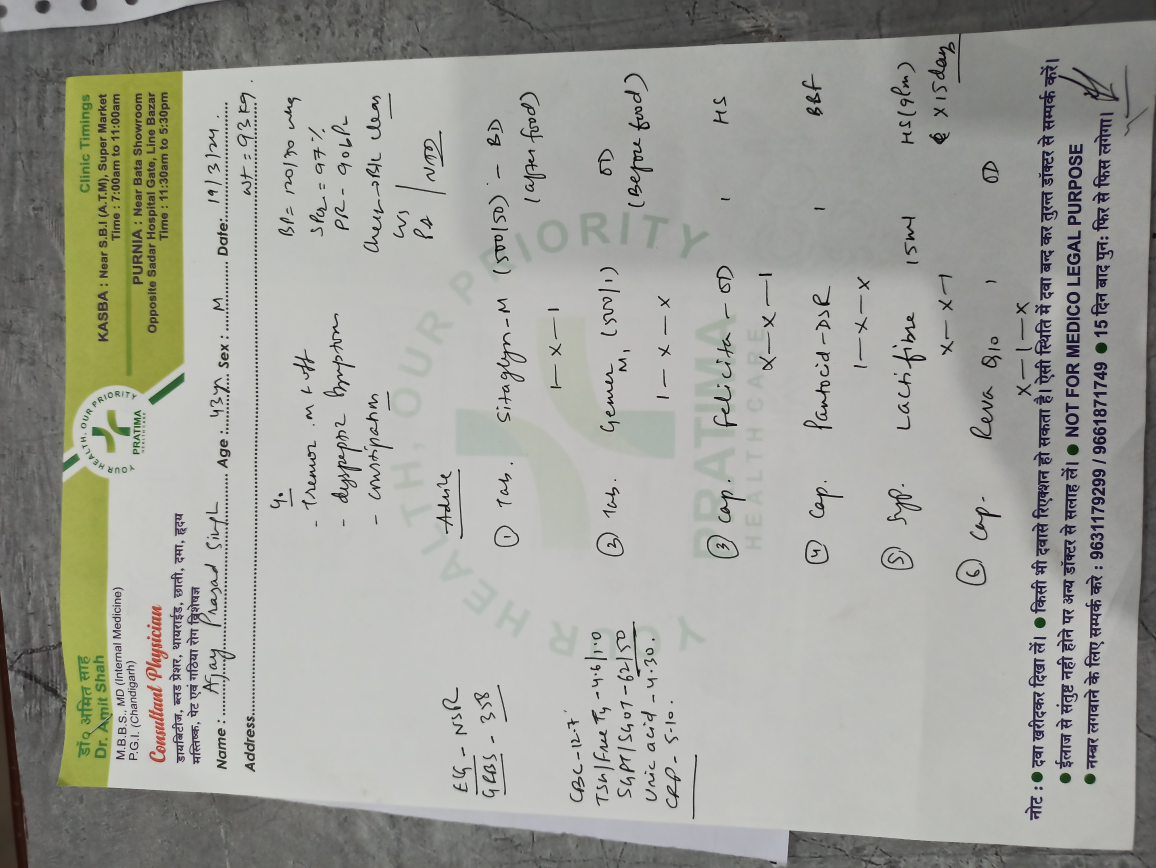 डॉ० अमित साह
Dr. Amit Shah
M.B.B.S., MD (Internal Medicine)
P.G.I. (Chandigarh)
Consultant Physician
डायबिटीज, ब्लड प्रेशर, थायराईड, छाती, दमा, हृदय
मस्तिष्क, पेट एवं गठिया रोग विशेषज्ञ
YOUR HEALTH, OUR PRIORITY
PRATIMA
Clinic Timings
KASBA : Near S.B.I (A.T.M), Super Market
Time : 7:00am to 11:00am
PURNIA : Near Bata Showroom
Opposite Sadar Hospital Gate, Line Bazar
Time : 11:30am to 5:30pm
Name : Ajay Prasad Singh Age : 43yr Sex : M Date: 19/3/24.
Address
wt = 93 kg.
- Tremor
- dyspeptic symptom
- constipation
BP = 120/70 mmg
SPO2 = 97%
PR - 90bPR
Chest → B/L clear
P/A NAD
EG - NSR
GRBS - 358
CBC - 12.7
TSH/Free T4 - 4.6/1.0
SGPT/SGOT - 62/50
Uric acid - 4.30.
CRP - 5.10.
Advice
① Tab. Sitaglyn-M (500/50) - BD
1 - x - 1 (after food)
② Tab. Gemer M1 (500/1) OD
1 - x - x (Before food)
③ Cap. Felicita - OD 1 HS
x - x - 1
④ Cap. Pantocid-DSR 1 BBF
1 - x - x
⑤ Syp. Lactifibre 15ml HS (9Pm)
x - x - 1 x 15 day
⑥ Cap. Reva Q10 1 OD
x - 1 - x
YOUR HEALTH, OUR PRIORITY
PRATIMA
HEALTHCARE
नोट : ● दवा खरीदकर दिखा लें। ● किसी भी दवासे रिएक्शन हो सकता है। ऐसी स्थिति में दवा बन्द कर तुरन्त डॉक्टर से सम्पर्क करें।
● ईलाज से संतुष्ट नही होने पर अन्य डॉक्टर से सलाह लें। ● NOT FOR MEDICO LEGAL PURPOSE
● नम्बर लगवाने के लिए सम्पर्क करे : 9631179299 / 9661871749 ● 15 दिन बाद पुन: फिर से फिस लगेगा।